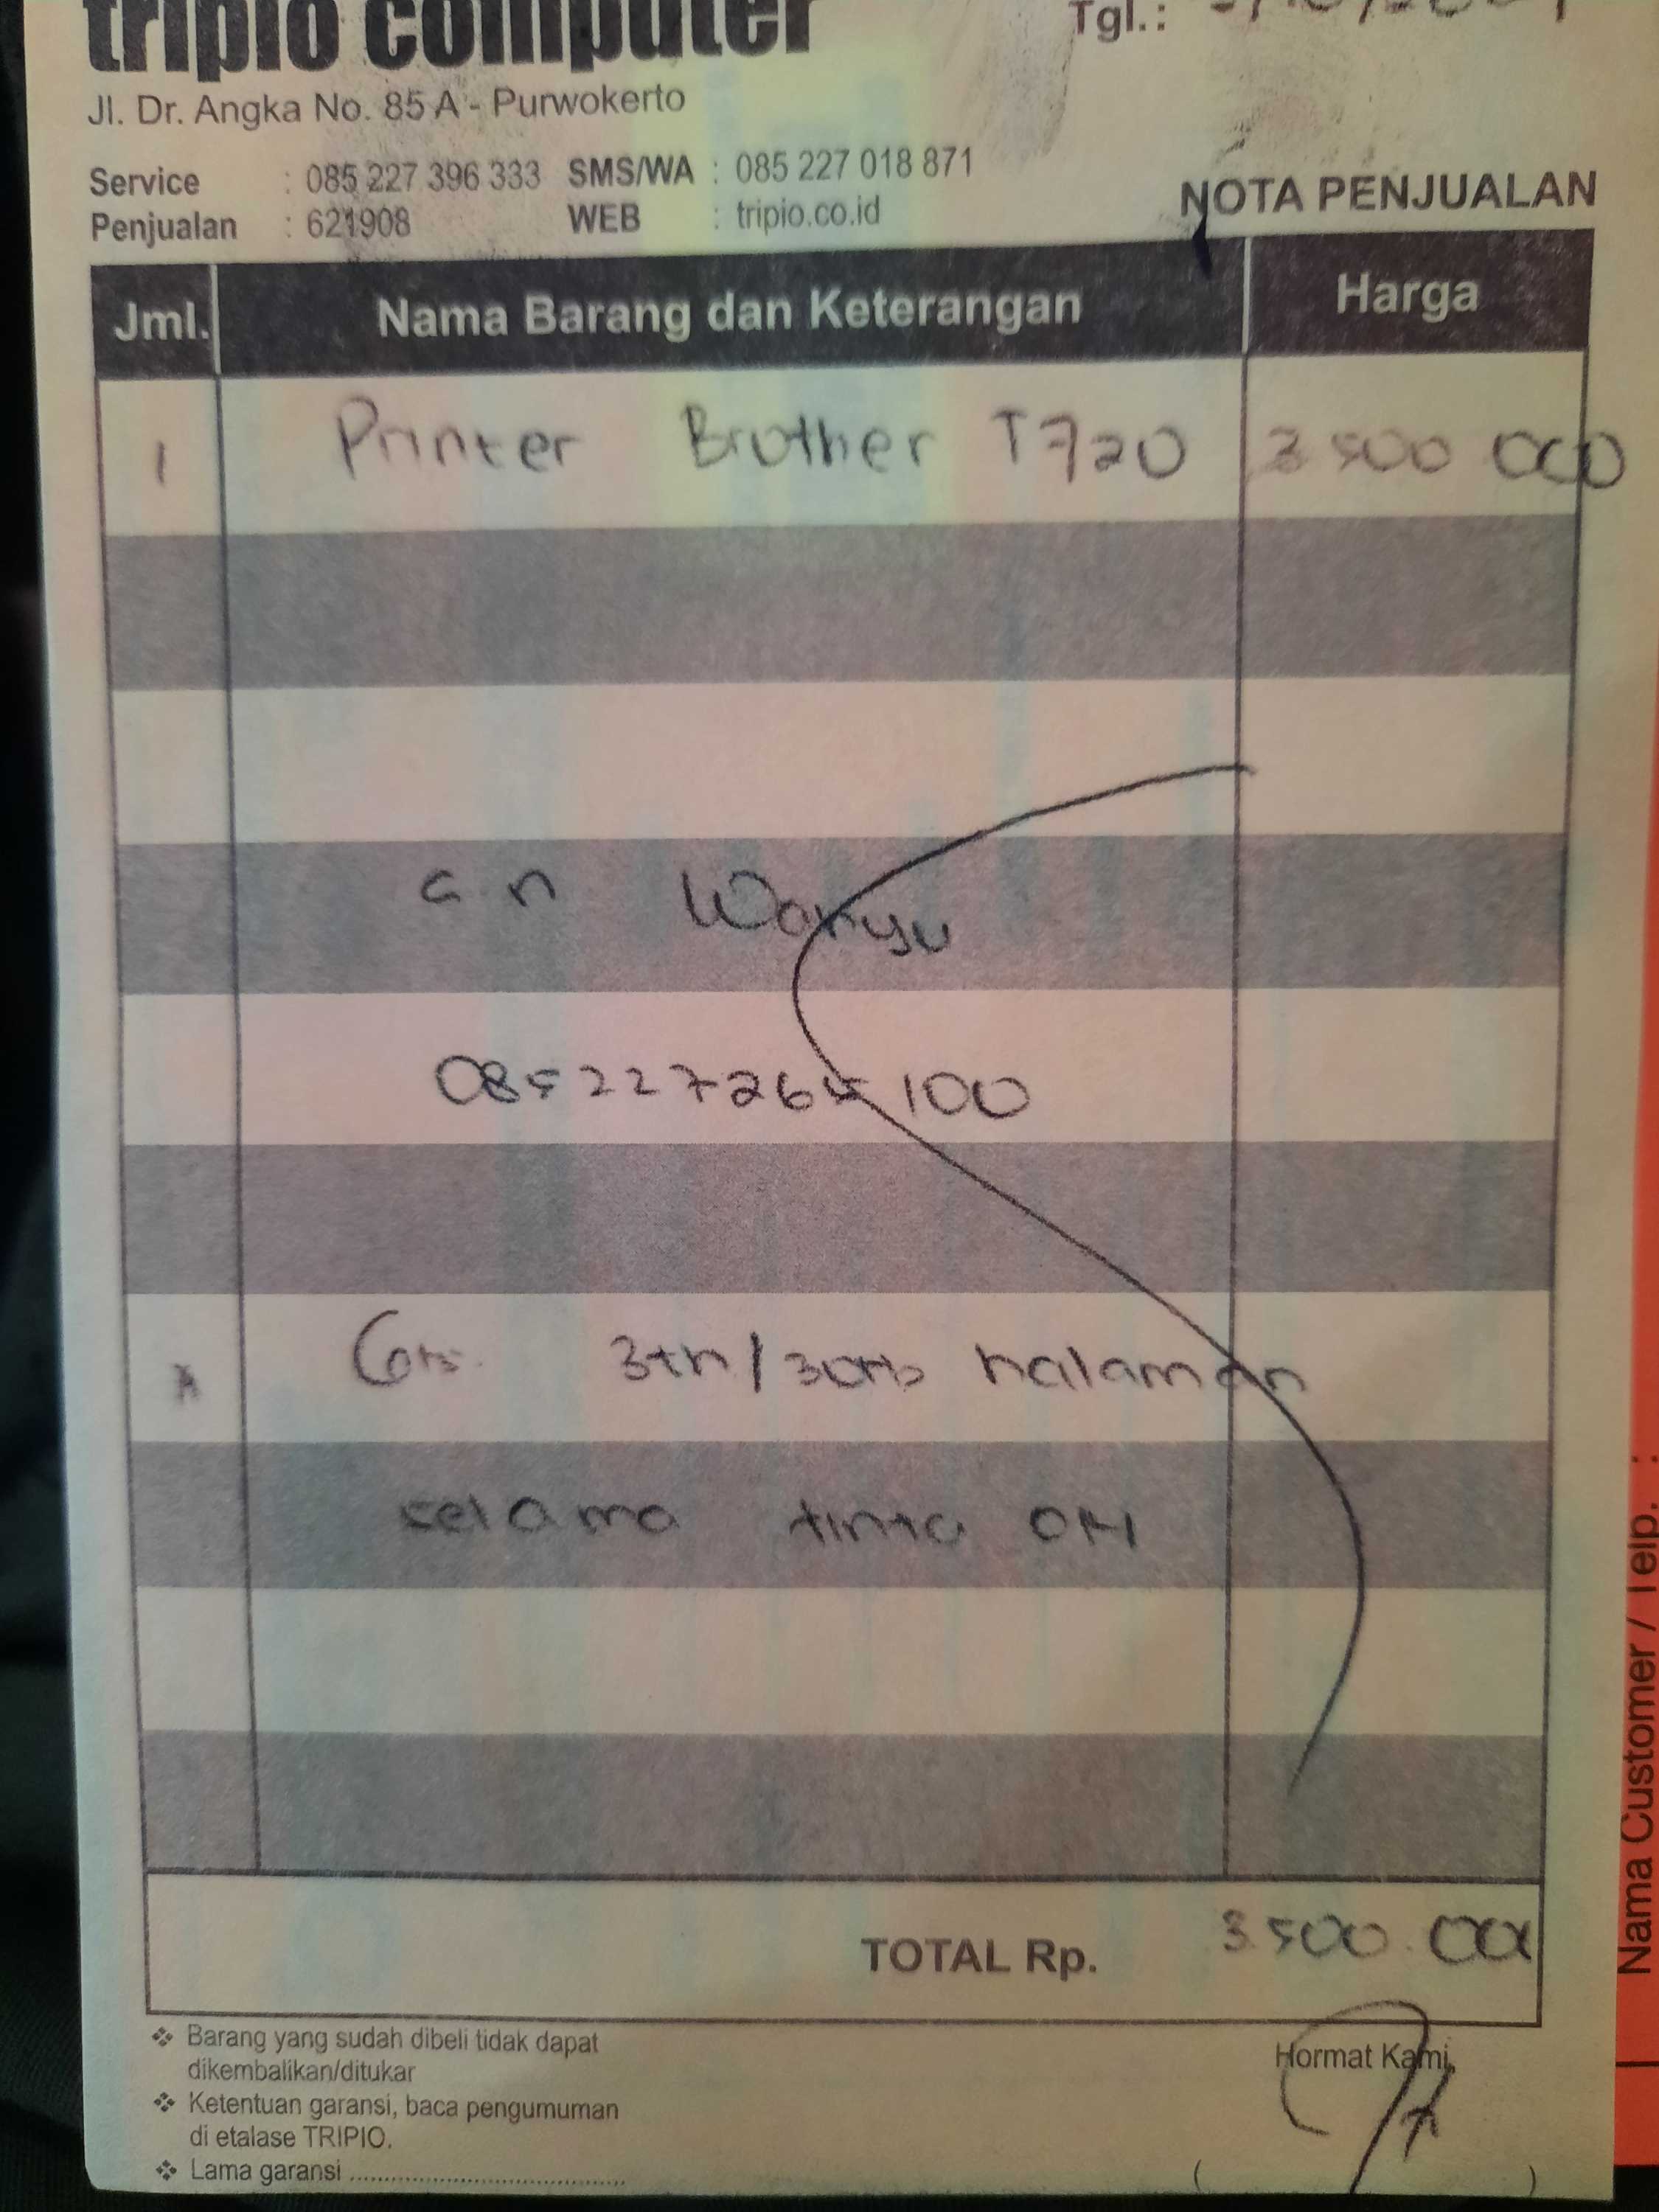 tripio computer
Tgl.:
Jl. Dr. Angka No. 85 A - Purwokerto
Service : 085 227 396 333 SMS/WA : 085 227 018 871
Penjualan : 621908 WEB : tripio.co.id
NOTA PENJUALAN
Jml. Nama Barang dan Keterangan Harga
1 Printer Brother T720 3 500 000
a.n Wahyu
3th/30rb halaman
selama tinta ori
TOTAL Rp. 3.500.000
Barang yang sudah dibeli tidak dapat
dikembalikan/ditukar
Ketentuan garansi, baca pengumuman
di etalase TRIPIO.
Lama garansi
Hormat Kami,
( )
Nama Customer / Telp. :